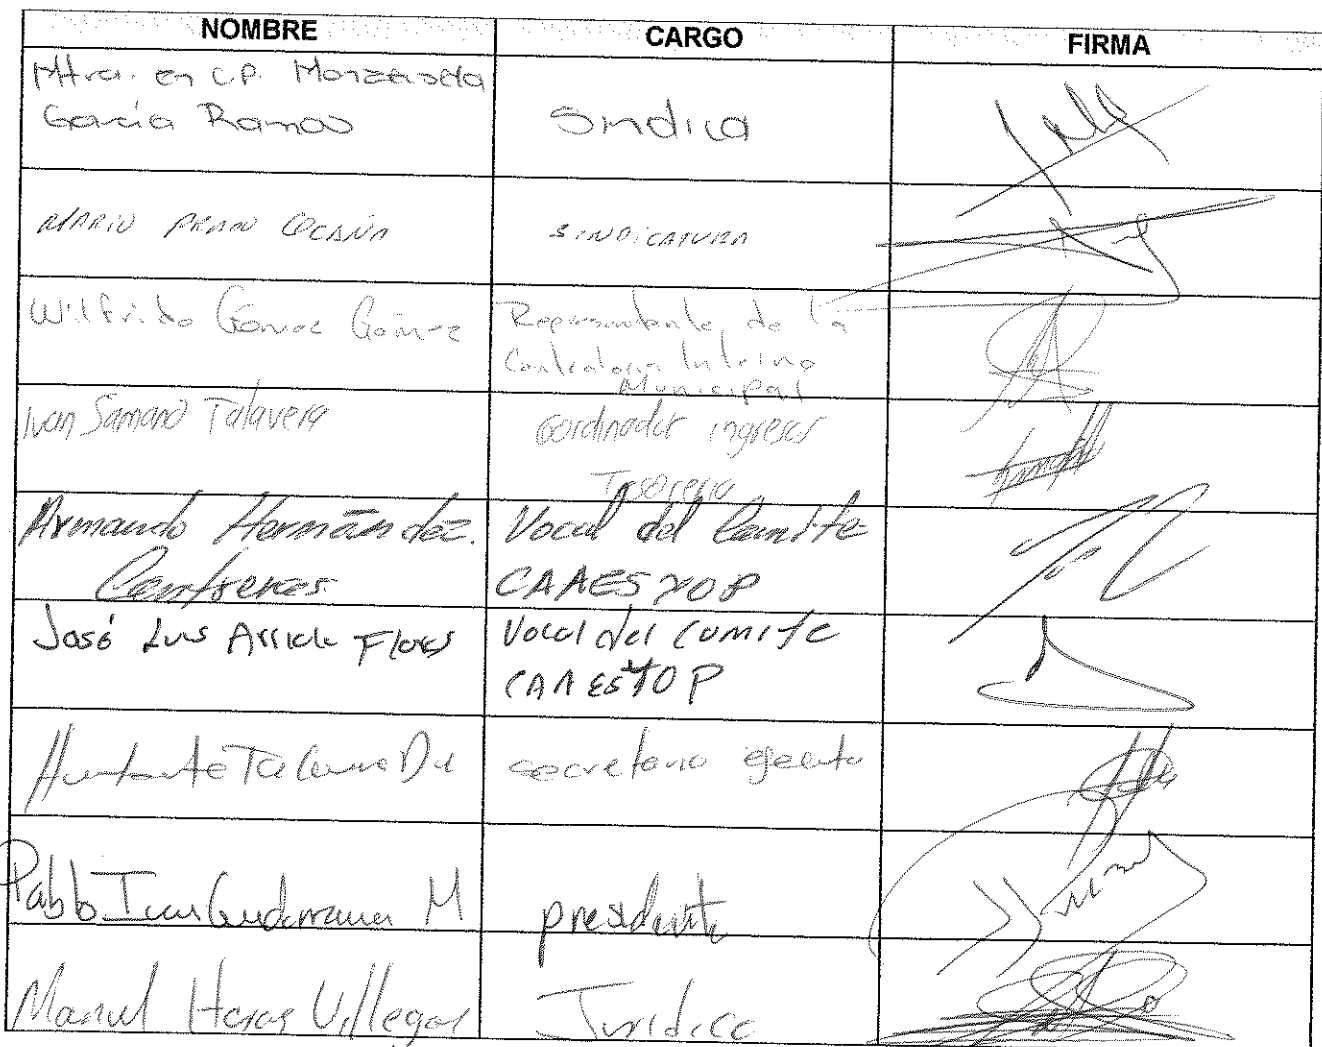 NOMBRE CARGO FIRMA
Mtra. en C.P. Monzerseta
García Ramos
Sindica
MARIO PRADO OCAÑA
SINDICATURA
Wilfrido Gómez Gómez
Representante de la
Contraloria Interna
Municipal
Ivan Samano Talavera
Coordinador ingresos
Tesoreria
Armando Hernández.
Contreras.
Vocal del Comite
CAAESYOP
José Luis Flores
Vocal del Comite
CAAESYOP
secretario
Pablo M
presidente
Manuel Villegas
Juridico